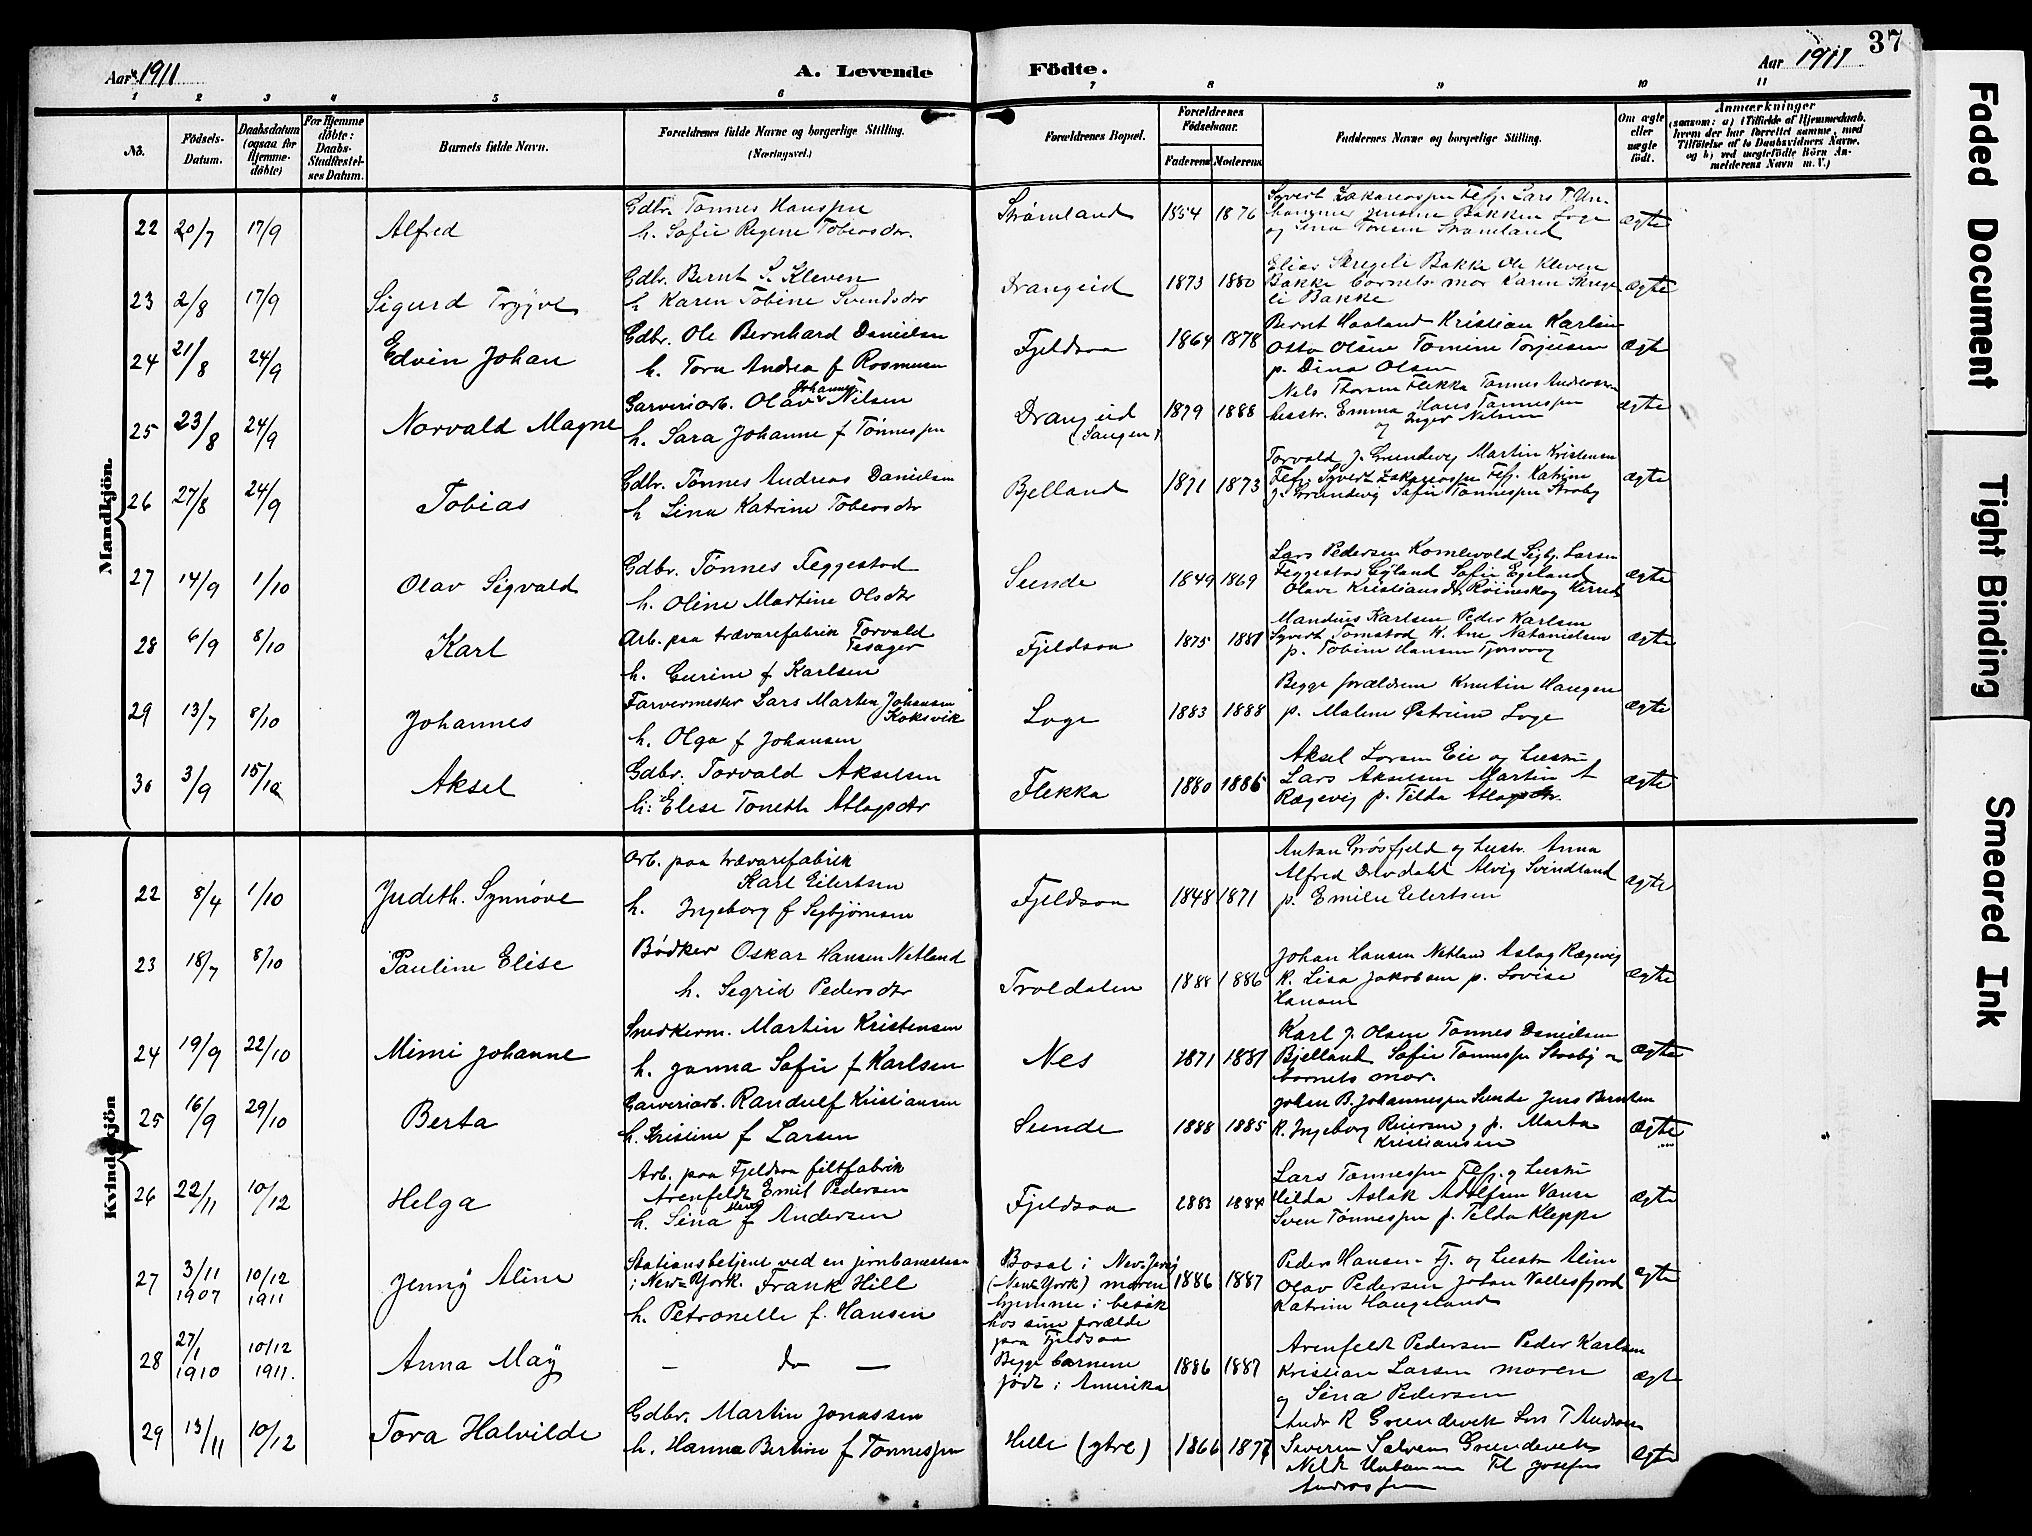 Aar 1911
A. Levende Födte.
Aar 1911
37
1 2 3 4 5 6 7 8 9 10 11
No.
Födsels-Datum.
Daabsdatum (ogsaa for Hjemme-döbte)
For Hjemme döbte: Daabs-Stadfæstel-ses Datum.
Barnets fulde Navn.
Forældrenes fulde Navne og borgerlige Stilling. (Næringsvei.)
Forældrenes Bopæl.
Forældrenes Födselsaar.
Faderens Moderens
Faddernes Navne og borgerlige Stilling.
Om ægte eller uægte födt.
Anmærkninger
(saasom: a) i Tilfælde af Hjemmedaab, hvem der har forrettet samme, med Tilföielse af to Daabsvidners Navne, og b) ved uægtefödte Börn An-melderens Navn m. V.)
Mandkjön.
22 20/7 17/9 Alfred
Gdbr. Tønnes Hanssen
h. Sofie Regine Tobiasdtr.
Strømland 1854 1876
ægte
23 2/8 17/9 Sigurd Trygve
Gdbr. Bernt S. Kleven
h. Karen Tobine Svendsdtr
Drangeid 1873 1880
Bakke barnets mor Karen
ægte
24 21/8 24/9 Edvin Johan
Gdbr. Ole Bernhard Danielsen
h. Tora Andrea f Rasmusen
Fjeldsaa 1864 1878
Bernt Haaland Kristian Karlsen
Otto Olsen Tomine Torjusen
p. Dina Olsen
ægte
25 23/8 24/9 Norvald Magne
Garveriarb. Olav Johannes Nilsen
h. Sara Johanne f Tønnessen
Drangeid 1879 1888
Nels Thorsen Flekka Tønnes Andersen
hustr. Emma Hans Tønnessen
og Inger Nilsen
ægte
26 27/8 24/9 Tobias
Gdbr. Tønnes Andreas Danielsen
h Lina Katrine Tobiasdtr
Bjelland 1871 1873
Torvald J. Grundevig Martin Kristensen
ægte
27 14/9 1/10 Olav Sigvald
Gdbr. Tønnes Feggestad
h. Oline Martine Olsdtr
Sunde 1849 1869
Lars Pedersen Komlevold Sigbj. Larsen
Feggestad Eyland Sofie Egeland
ægte
28 6/9 8/10 Karl
Arb. paa trævarefabrik Torvald
h. Gurine f Karlsen
Fjeldsaa 1875 1881
Mandius Karlsen Peder Karlsen
Syvert Tomstad K. Ane Natanielsen
p. Tobine Hansen
ægte
29 13/7 8/10 Johannes
Farvermester Lars Martin Johansen
Koksvik
h. Olga f Johansen
Loge 1883 1888
Begge forældrene Knutin Haugen
p. Malene Østrem Loge
ægte
30 3/9 15/10 Aksel
Gdbr. Torvald Akselsen
h. Elise Toneth Atlagsdtr
Flekka 1880 1886
Aksel Larsen Eie og hustru
Lars Akselsen Martin A
Rægevig p. Tilda Atlagsdtr.
ægte
Kvindekjön
22 8/4 1/10 Judeth Synnøve
Arb. paa trævarefabrik
Karl Eilertsen
h. Ingeborg f Sigbjørnsen
Fjeldsaa 1848 1871
Anton Grøsfjeld og hustr. Anna
Alfred Alvig Svindland
p. Emilie Eilertsen
ægte
23 18/7 8/10 Pauline Elise
Bødker Oskar Hansen Netland
h. Segrid Pedersdtr
Troldalen 1888 1886
Johan Hansen Netland Aslag Rægevig
K. Lisa Jakobsen p. Lovise
Hansen
ægte
24 19/9 22/10 Mimi Johanne
Snedkerm. Martin Kristensen
h. Janna Sofie f Karlsen
Nes 1871 1881
Karl J. Olsen Tønnes Danielsen
Bjelland Sofie Tønnessen
barnets mor.
ægte
25 16/9 29/10 Berta
Garveriarb. Randulf Kristiansen
h. Kristine f Larsen
Sunde 1888 1885
Johan B. Johannessen Sunde Jens Berntsen
K. Ingeborg Reiersen og p. Marta
Kristiansen
ægte
26 22/11 10/12 Helga
Arb. paa Fjeldsaa filtfabrik
Arenfeldt Emil Pedersen
h. Sina f Andersen
Fjeldsaa 1883 1884
Lars Tønnessen Fj. og hustru
Hilda Aslak Adolfsen Vanse
Sven Tønnessen p. Tilda Kleppe
ægte
27 3/11 1907 10/12 1911 Jenny Aline
Stationsbetjent ved en jernbanestation
i New-York. Frank Hill
h. Petronelle f. Hansen
Bosat i New-Jersey
(New-York) moren
hjemme i besøk
hos sine forældre
paa Fjeldsaa
1886 1887
Peder Hansen Fj. og hustr Aline
Olav Pedersen Johan Vallesfjord
Katrine Haugeland
ægte
28 27/1 1910 10/12 1911. Anna May
— do —
Begge barnene
født i Amerika
1886 1887
Arenfeldt Pedersen Peder Karlsen
Kristian Larsen moren
og Sina Pedersen
ægte
29 13/11 10/12 Tora Halvilde
Gdbr. Martin Jonassen
h. Hanna Bertine f Tønnessen
Helle (ytre) 1866 1877
Severin Salvesen Grundevik
ægte
Faded Document
Tight Binding
Smeared Ink